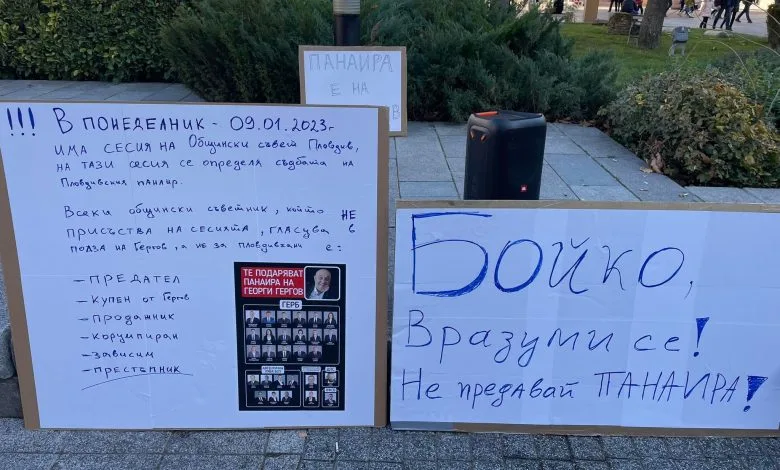 ПАНАИРА
Е НА
В
!!! В ПОНЕДЕЛНИК - 09.01.2023г
има сесия на Общински съвет Пловдив,
на тази сесия се определя съдбата на
Пловдивския панаир.
Всеки общински съветник, който НЕ
присъства на сесията, гласува в
полза на Гергов, а не за пловдивчани е:
- ПРЕДАТЕЛ
- Купен от Гергов
- Продажник
- Корупиран
- Зависим
- ПРЕСТЪПНИК
ТЕ ПОДАРЯВАТ
ПАНАИРА НА
ГЕОРГИ ГЕРГОВ
ГЕРБ
JBL
БОЙКО,
Вразуми се!
Не предавай ПАНАИРА!